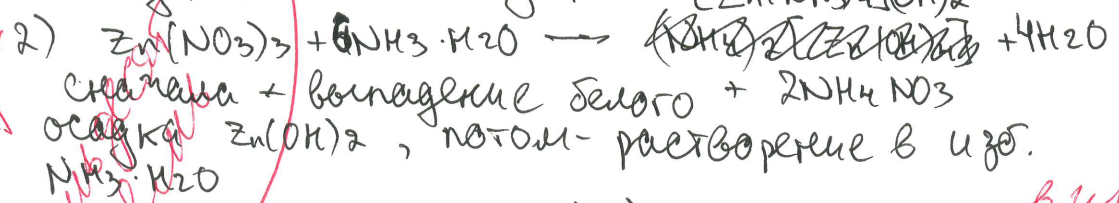 2) Zn(NO3)3 + 6NH3·H2O — + 4H2O
сначала + выпадение белого + 2NH4NO3
осадка Zn(OH)2, потом - растворение в изб.
NH3·H2O